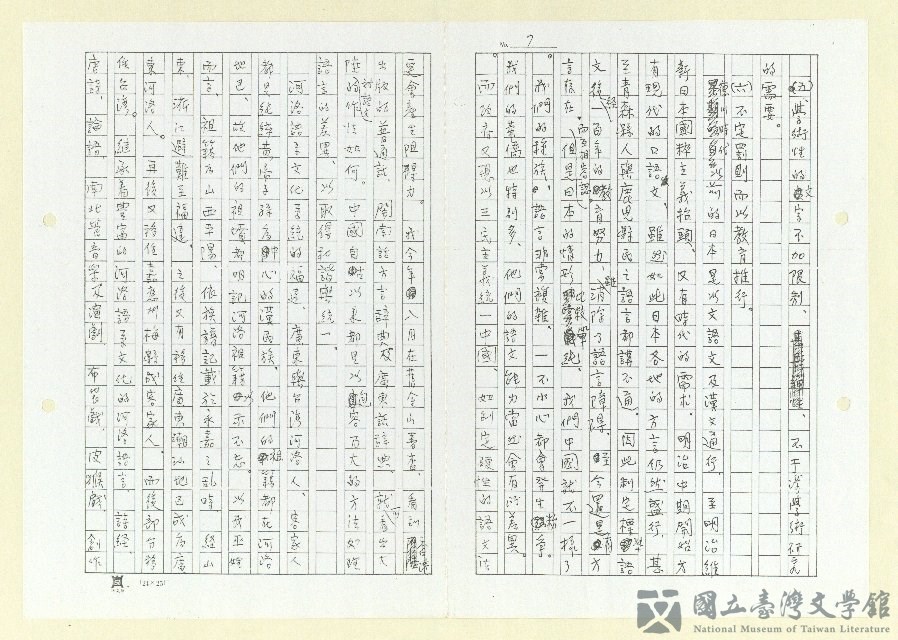 № 7
(五)學術性的文字不加限制，不干涉學術研究
的需要。
(六)不定罰則而以教育推行。
以前的日本是以文語文及漢文通行，至明治維
新日本國粹主義抬頭，又有時代的需求。明治中期開始方
有現代的口語文，雖然如此日本各地的方言仍然盛行，甚
至青森縣人與鹿兒縣民之語言都講不通。因此制定標準語
文後，經百年的教育努力，消除了語言障碍。
言後在。但是日本的情形比較單純，我們中國就不一樣了
我們的種族，語言非常複雜。一不小心都會發生紛爭。
我們的華僑也特別多，他們的語文能力當然會有所差異。
而政府又得以三民主義統一中國，如制定硬性的語文法
更會產生阻碍力。我今年八月在舊金山書查，看到
出版的普通話，閩南話方言辭典及廣東話辭典。就可看出大
陸的作法如何。中國自古以來都是以包容乃大的方法如
語言的差異，以取得和諧與統一。
河洛語系文化系統的福建廣東與台灣河洛人、客家人
都是純粹黃帝子孫為中心的漢民族。他們的祖籍都在河洛
地區，故他們的祖墳都明記河洛祖籍以示不忘。以我巫姓
而言，祖籍乃山西平陽，依族譜記載於永嘉之亂時經山
東、浙江避難至福建，之後又有移住廣東潮汕地區成為廣
東河洛人。再後又移住嘉應州梅縣成客家人。而後部分移
住台灣。繼承着豐富的河洛語系文化的河洛語言，詩經
唐詩，論語，南北管音樂及演劇，布袋戲，皮猴戲，創作
(21×25)
國立臺灣文學館
National Museum of Taiwan Literature